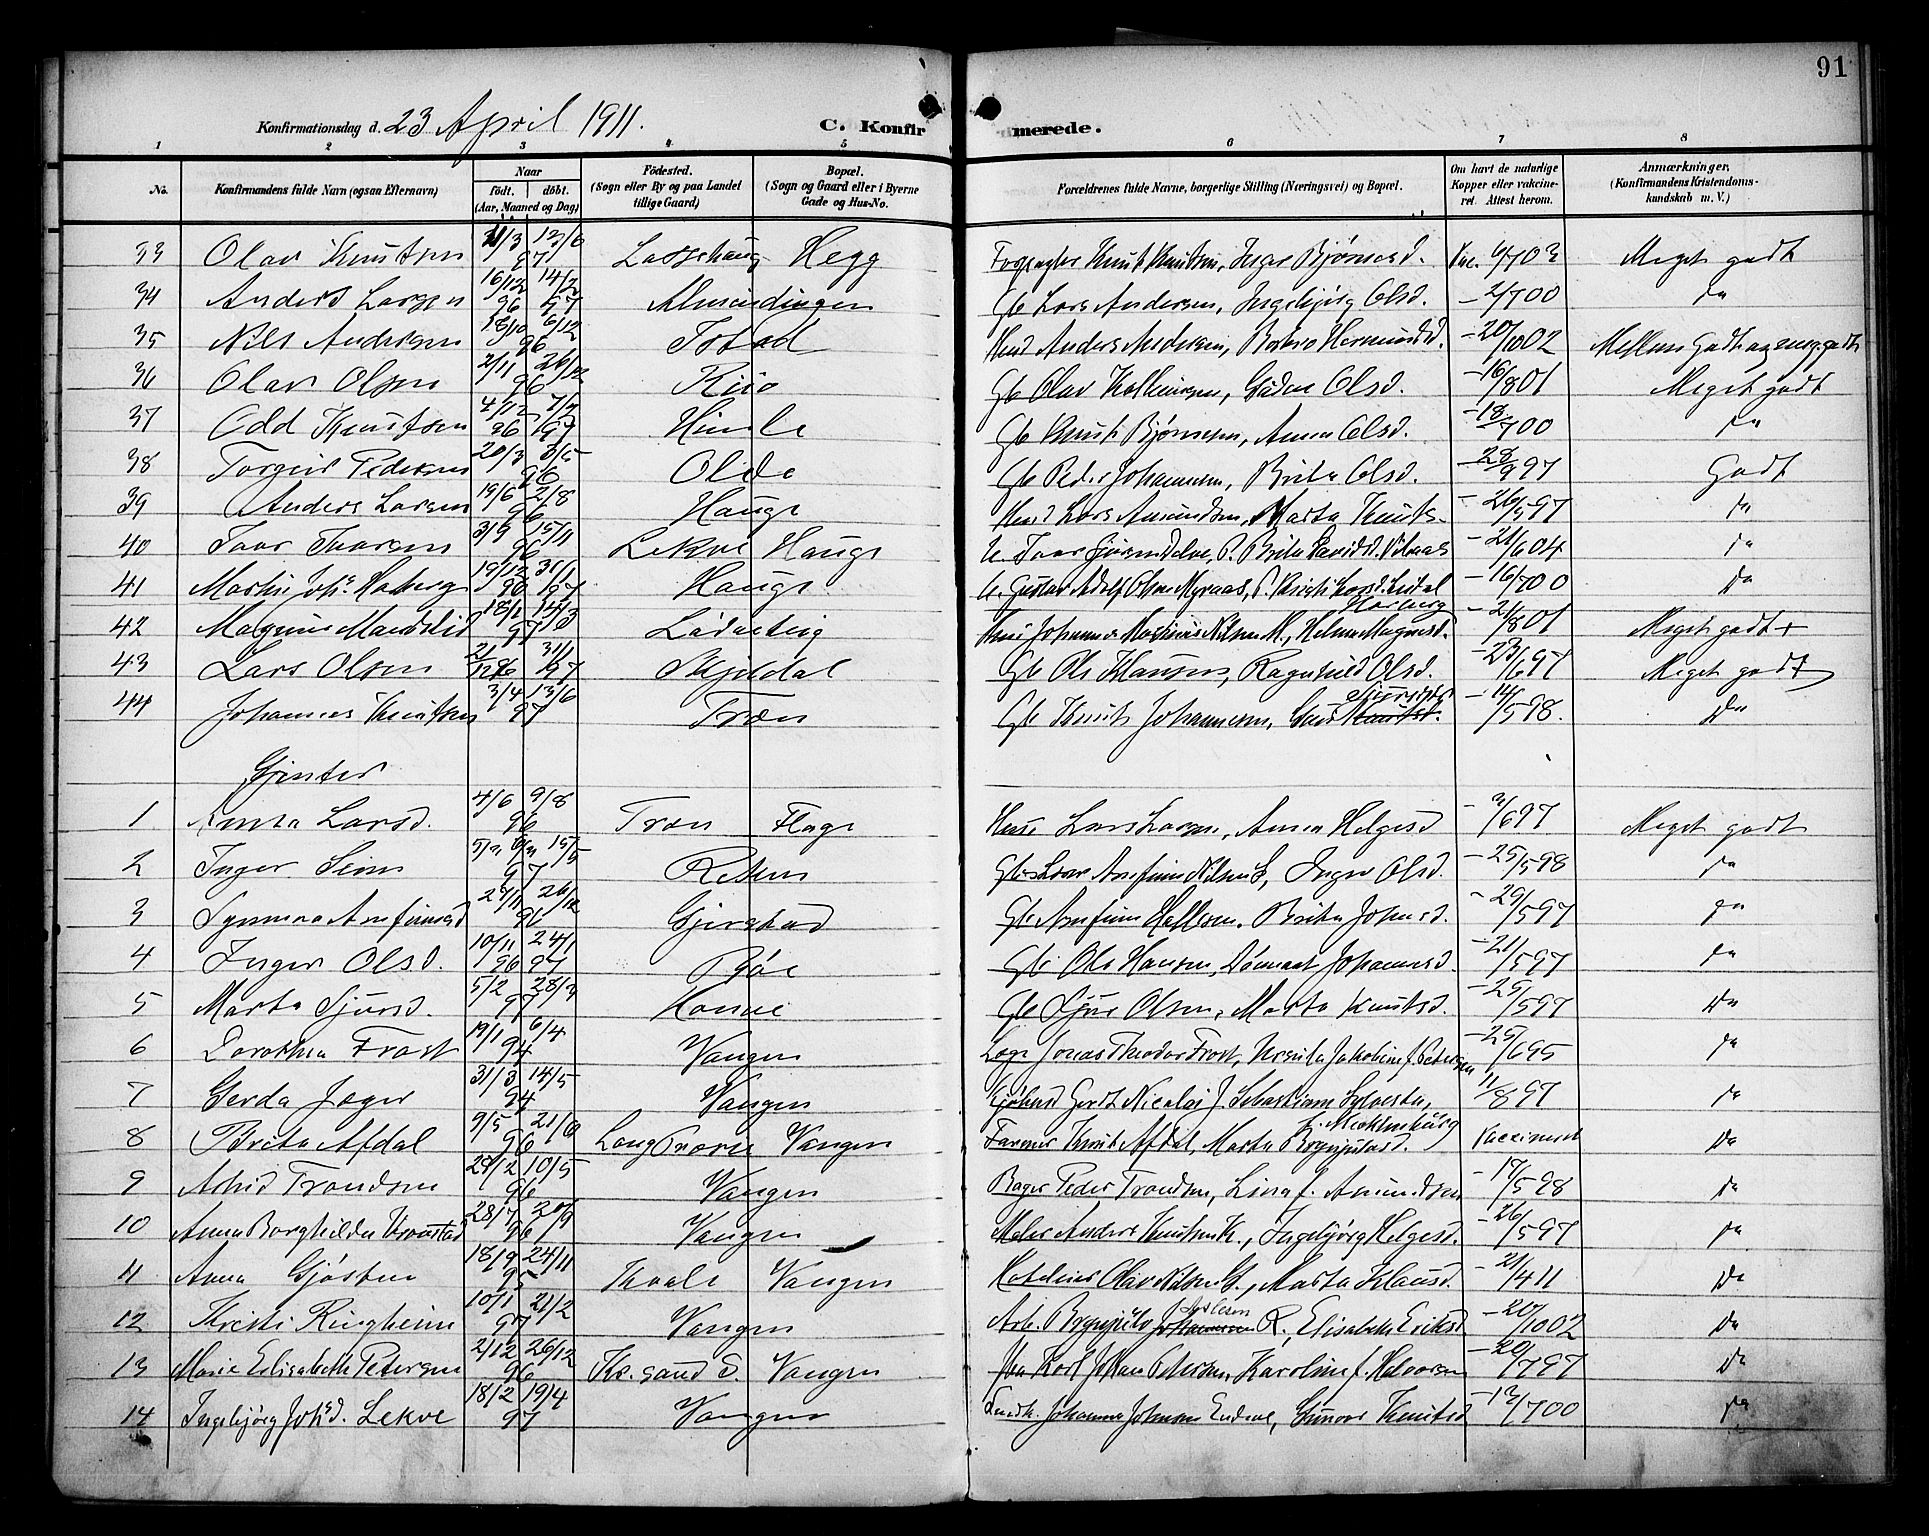 91
Konfirmationsdag d. 23 April 1911. C. Konfirmerede.
1 2 3 4 5 6 7 8
No. Konfirmandens fulde Navn (ogsaa Efternavn) Naar født. døbt. (Aar, Maaned og Dag) Födested. (Sogn eller By og paa Landet tillige Gaard) Bopæl. (Sogn og Gaard eller i Byerne Gade og Hus-No. Forældrenes fulde Navne, borgerlige Stilling (Næringsvei) og Bopæl. Om havt de naturlige Kopper eller vakcineret. Attest herom. Anmærkninger, (Konfirmandens Kristendomskundskab m. V.)
33 Olav Knutsen 31/3 13/6 97 Lassehaug Hegg Knut Knutsen, Inger Bjørnsd. Vac. 6/7 03 Meget godt
34 Anders Larsen 16/12 96 14/2 97 Almindingen Gb Lars Andersen, Ingebjørg Olsd. – 2/7 00 Da
35 Nils Andersen 18/10 6/12 96 Istad Husd Anders Andersen, Hermundsd. – 20/10 02 Mellem Godt og meg. godt
36 Olav Olsen 2/11 26/12 96 Gb Olav Olsd. – 16/8 01 Meget godt
37 Odd Knutsen 4/12 96 7/2 97 Himle Gb Knut Bjørnsen, Anna Olsd. – 18/7 00 Da
38 Torgeir Pedersen 20/3 3/5 96 Olde Gb Peder Johannesen, Brita Olsd. – 28/9 97 Godt
39 Anders Larsen 19/6 2/8 96 Hauge Husd Lars Amundsen, Marta Knuts– – 26/5 97 Da
40 Ivar Ivarsen 31/9 15/11 96 Lekve Hauge U. Ivar P. Brita Davidsd. – 21/6 04 Da
41 Martin Johs Haberg 19/12 96 31/1 97 Hauge U. Gustav Adolf Olsen Myraas, P. – 16/7 00 Da
42 Magnus Mandelid 18/1 14/3 97 Lidarteig Johannes Nilsen M., Magnusd. – 21/8 01 Meget godt +
43 Lars Olsen 21/12 96 31/1 97 Skjeldal Gb Ole Klausen, Ragnhild Olsd. – 23/6 97 Meget godt
44 Johannes Knutsen 3/4 13/6 97 Træn Gb Knut Johannesen, Knutsd. – 14/5 98. Da
Gjenter
1 Anna Larsd. 4/6 9/8 96 Træn Flage Lars Larsen, Anna Helgesd – 2/6 97 Meget godt
2 Inger Seim 15/5 97 Rekve Arnfinn Nilsen S, Inger Olsd. – 25/5 98 Da
3 Synneva Arnfinnsd 24/11 26/12 96 Gjerstad Gb. Arnfinn Hallesen, Brita Johnsd. – 29/5 97 Da
4 Inger Olsd. 10/11 96 24/1 97 Bøe Gb. Ole Hansen, Johannesd. – 21/5 97 Da
5 Marta Sjursd. 5/2 28/3 97 Honve Gb Sjur Olsen, Marta Knutsd. – 25/5 97 Da
6 Dorothea Frost 19/1 6/4 94 Vangen Jonas Theodor Frost, Ursula Jakobine f. Petersen – 25/6 95 Da
7 Gerda Jæger 31/3 14/5 94 Vangen Gerdt Nicolai J. Sebastiane Sylvesta, f. Mecklenburg 11/8 97 Da
8 Brita Afdal 9/5 21/6 96 Lang Prairie Vangen Farmer Knut Afdal, Marta Brynjulvsd. Vaccineret Da
9 Astrid Trondsen 28/2 10/5 96 Vangen Bager Peder Trondsen, Lina f. Amundsen – 17/5 98 Da
10 Anna Borghilda Kronstad 28/7 20/9 96 Vangen Maler Anders Knutsen K., Ingebjørg Helgesd. – 26/5 97 Da
11 Anna Gjøstein 18/9 24/11 95 Vangen Olav Nilsen G., Marta Klausd. – 21/4 11 Da
12 Kristi Ringheim 10/1 21/2 97 Vangen Arb. Brynjulv Johannesen R., Elisabeth Eriksd – 20/10 02 Da
13 Marie Elisabeth Petersen 2/12 26/12 96 Kr. sand S. Vangen Karl Johan Petersen, Karoline f. Halvorsen – 20/7 97 Da
14 Ingebjørg Johsd. Lekve 18/2 19/4 97 Vangen Johannes Johnsen Endeve, Gunvor Knutsd – 12/7 00 Da